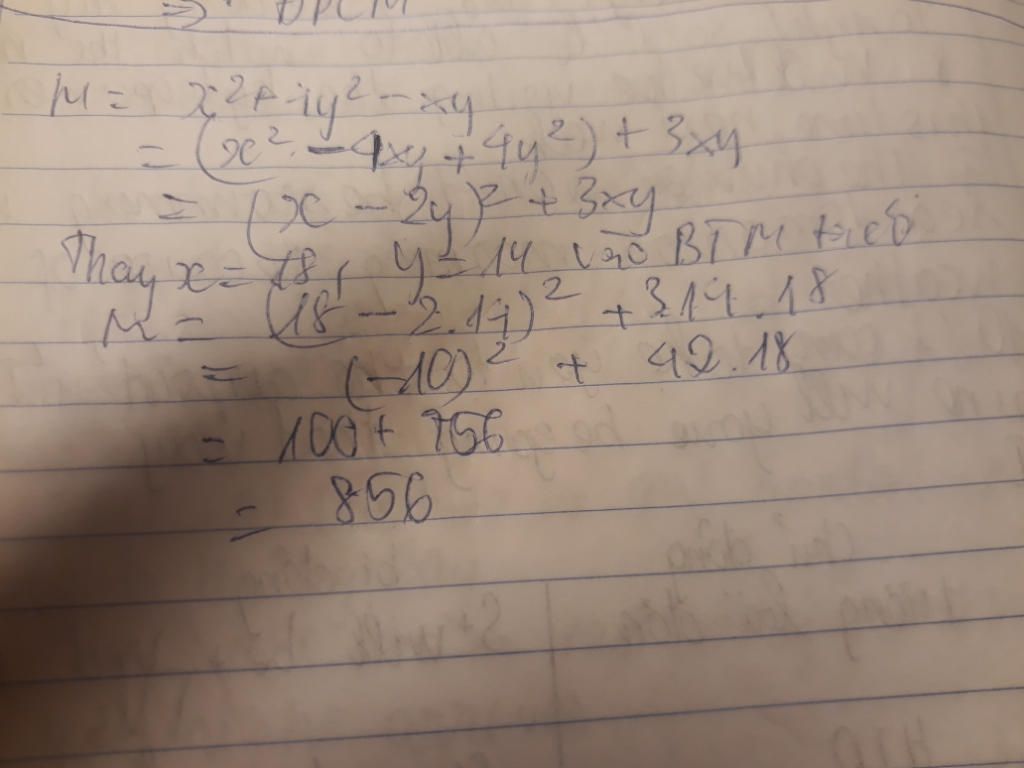 => ĐPCM
M = x² + 4y² - xy
= (x² - 4xy + 4y²) + 3xy
= (x - 2y)² + 3xy
Thay x = 18, y = 14 vào BTM
M = (18 - 2.14)² + 3.14.18
= (-10)² + 42.18
= 100 + 756
= 856